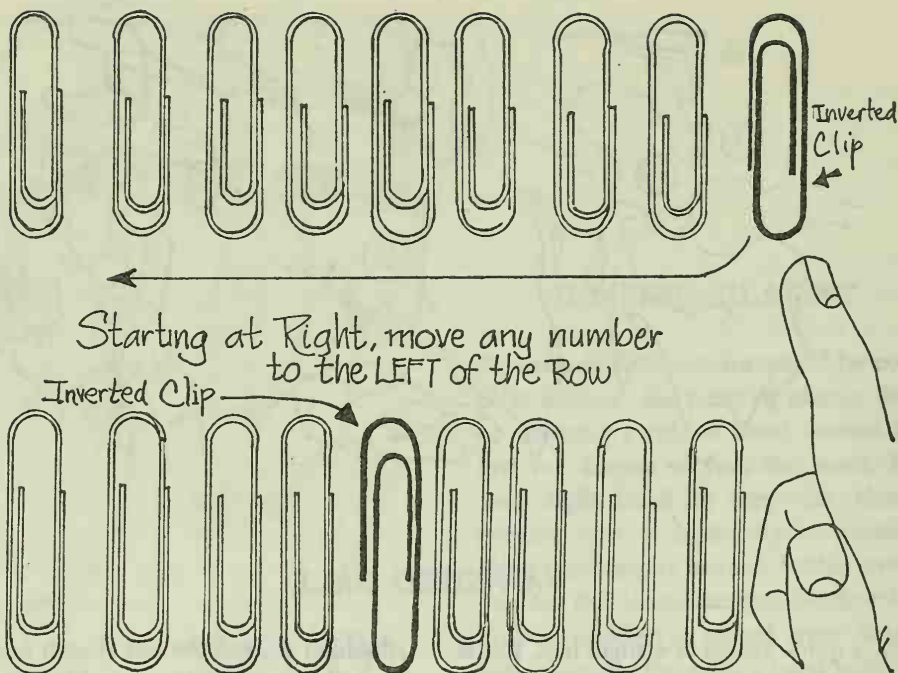 Inverted
Clip
Starting at Right, move any number
to the LEFT of the Row
Inverted Clip